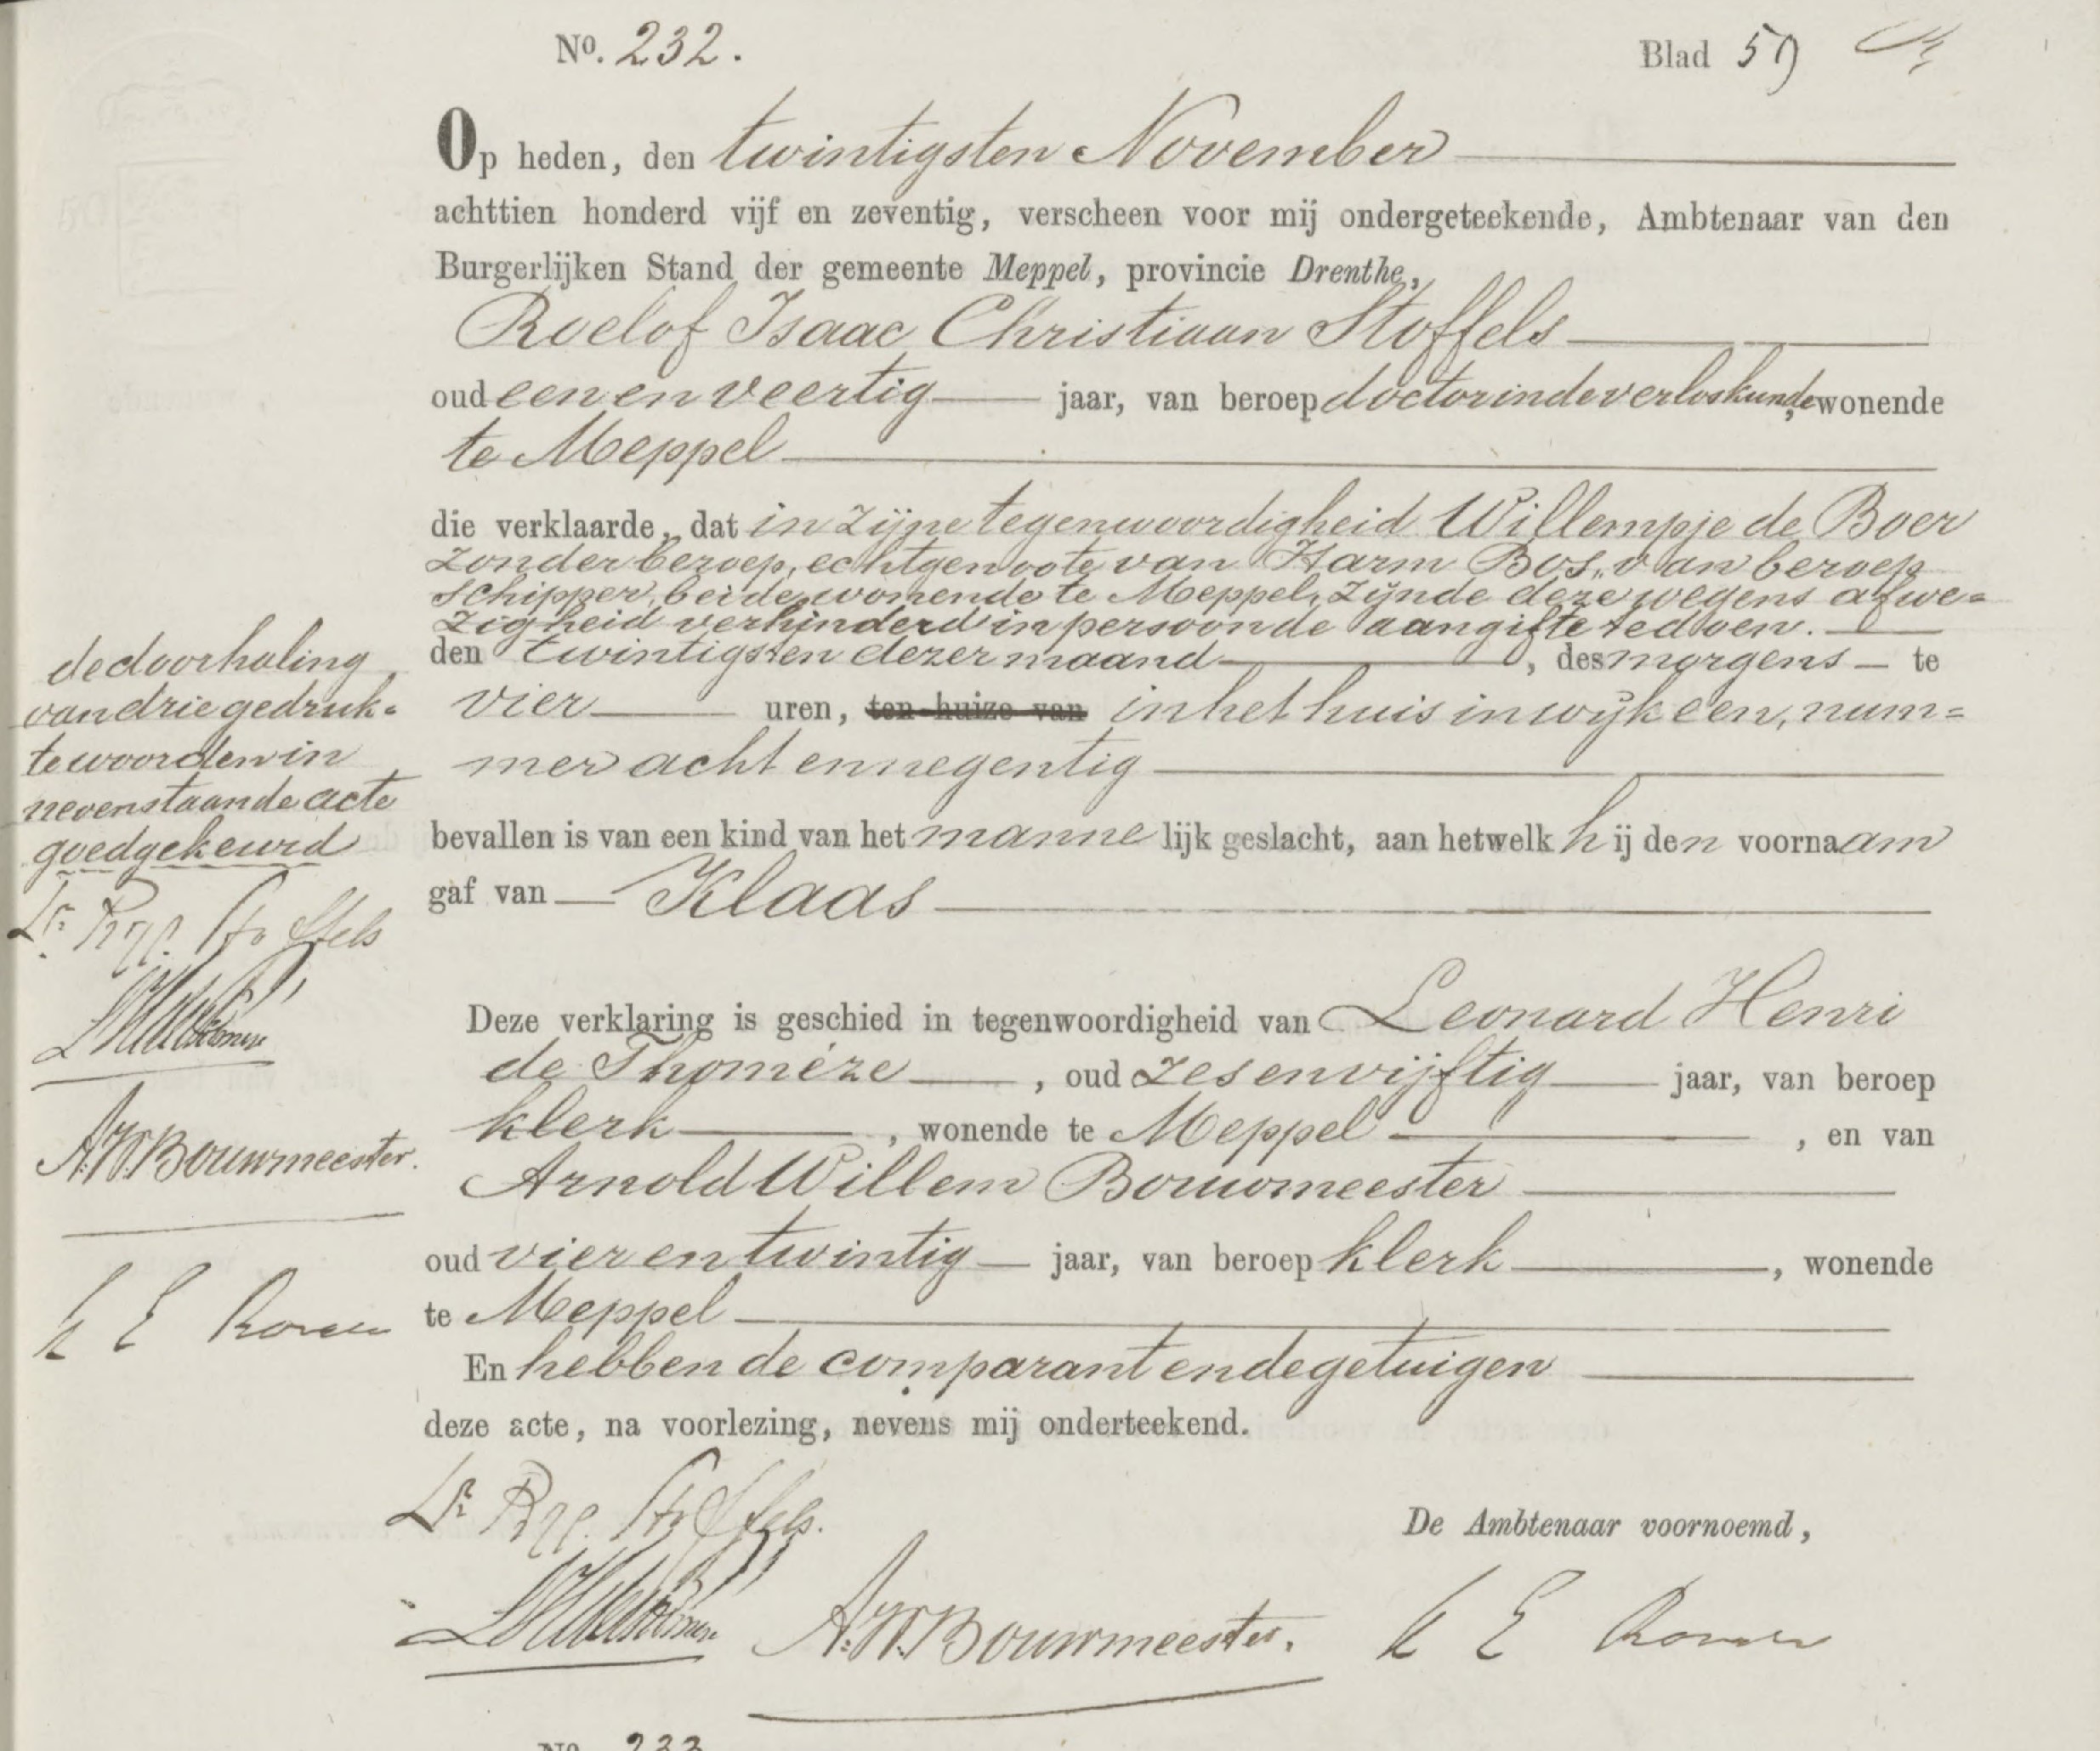 No. 232.
Blad 59
Op heden, den twintigsten November
achttien honderd vijf en zeventig, verscheen voor mij ondergeteekende, Ambtenaar van den
Burgerlijken Stand der gemeente Meppel, provincie Drenthe,
Roelof Isaac Christiaan Stoffels
oud een en veertig jaar, van beroep doctor in de verloskunde, wonende
te Meppel
die verklaarde, dat in zijne tegenwoordigheid Willempje de Boer
zonder beroep, echtgenoote van Harm Bos, van beroep
schipper, beide wonende te Meppel, zijnde deze wegens afwe=
zigheid verhinderd in persoon de aangifte te doen.
den twintigsten dezer maand, des morgens te
vier uren, ten huize van in het huis in wijk een, num=
mer acht en negentig
bevallen is van een kind van het mannelijk geslacht, aan hetwelk hij den voornaam
gaf van Klaas
de doorhaling
van drie gedruk=
te woorden in
nevenstaande acte
goedgekeurd
Dr. R.I.C. Stoffels
A.W. Bouwmeester.
Deze verklaring is geschied in tegenwoordigheid van Leonard Henri
de Thomèze, oud zes en vijftig jaar, van beroep
klerk, wonende te Meppel, en van
Arnold Willem Bouwmeester
oud vier en twintig jaar, van beroep klerk, wonende
te Meppel
En hebben de comparant en de getuigen
deze acte, na voorlezing, nevens mij onderteekend.
Dr. R.I.C. Stoffels.
De Ambtenaar voornoemd,
A.W. Bouwmeester.
No. 233